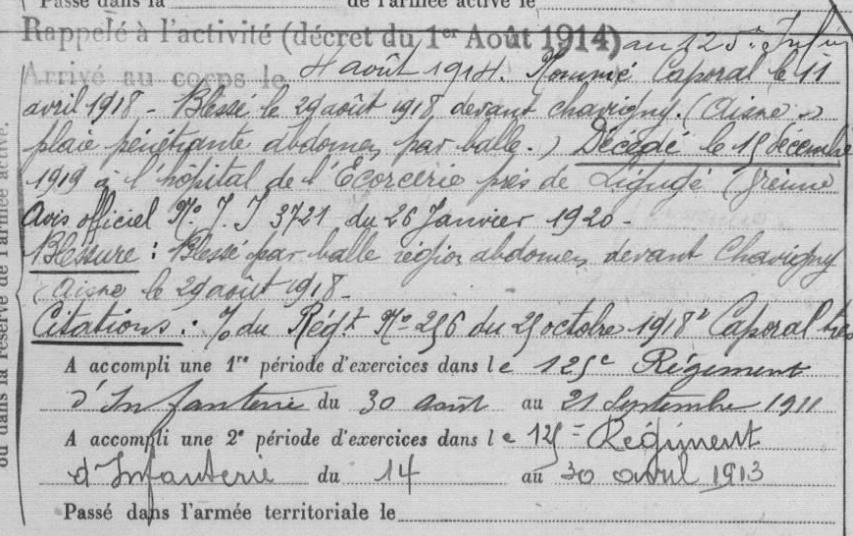 Passé dans la de l'armée active le
Rappelé à l'activité (décret du 1er Août 1914) au 125e Infie
Arrivé au corps le 4 août 1914. Nommé Caporal le 11
avril 1918 - Blessé le 29 août 1918 devant Chavigny. (Aisne.)
plaie pénétrante abdomen, par balle.) Décédé le 15 décembre
1919 à l'hôpital de l'Ecorcerie près de Ligugé (Vienne
Avis officiel No. J. J 3721 du 26 Janvier 1920 -
Blessure : Blessé par balle région abdomen, devant Chavigny
(Aisne le 29 août 1918 -
Citations : du Régt No 256 du 25 octobre 1918 Caporal très
A accompli une 1re période d'exercices dans le 125e Régiment
d'Infanterie du 30 août au 21 Septembre 1911
A accompli une 2e période d'exercices dans le 125e Régiment
d'Infanterie du 14 au 30 avril 1913
Passé dans l'armée territoriale le
ou dans la réserve de l'armée active.